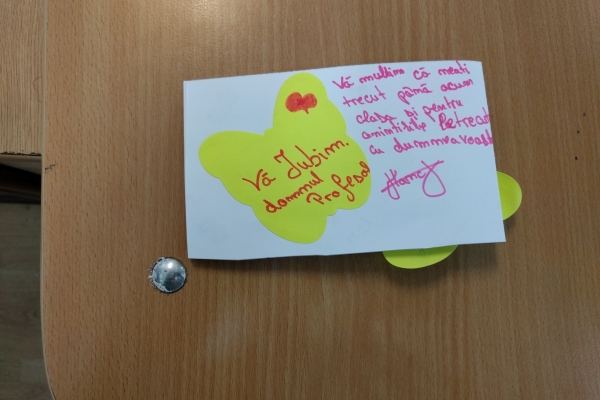 Vă Iubim.
domnul
Profesor
Vă mulțim că meati
trecut pâmă acum
clasa și pentru
amintirile Petrecute
cu dumneavoastă